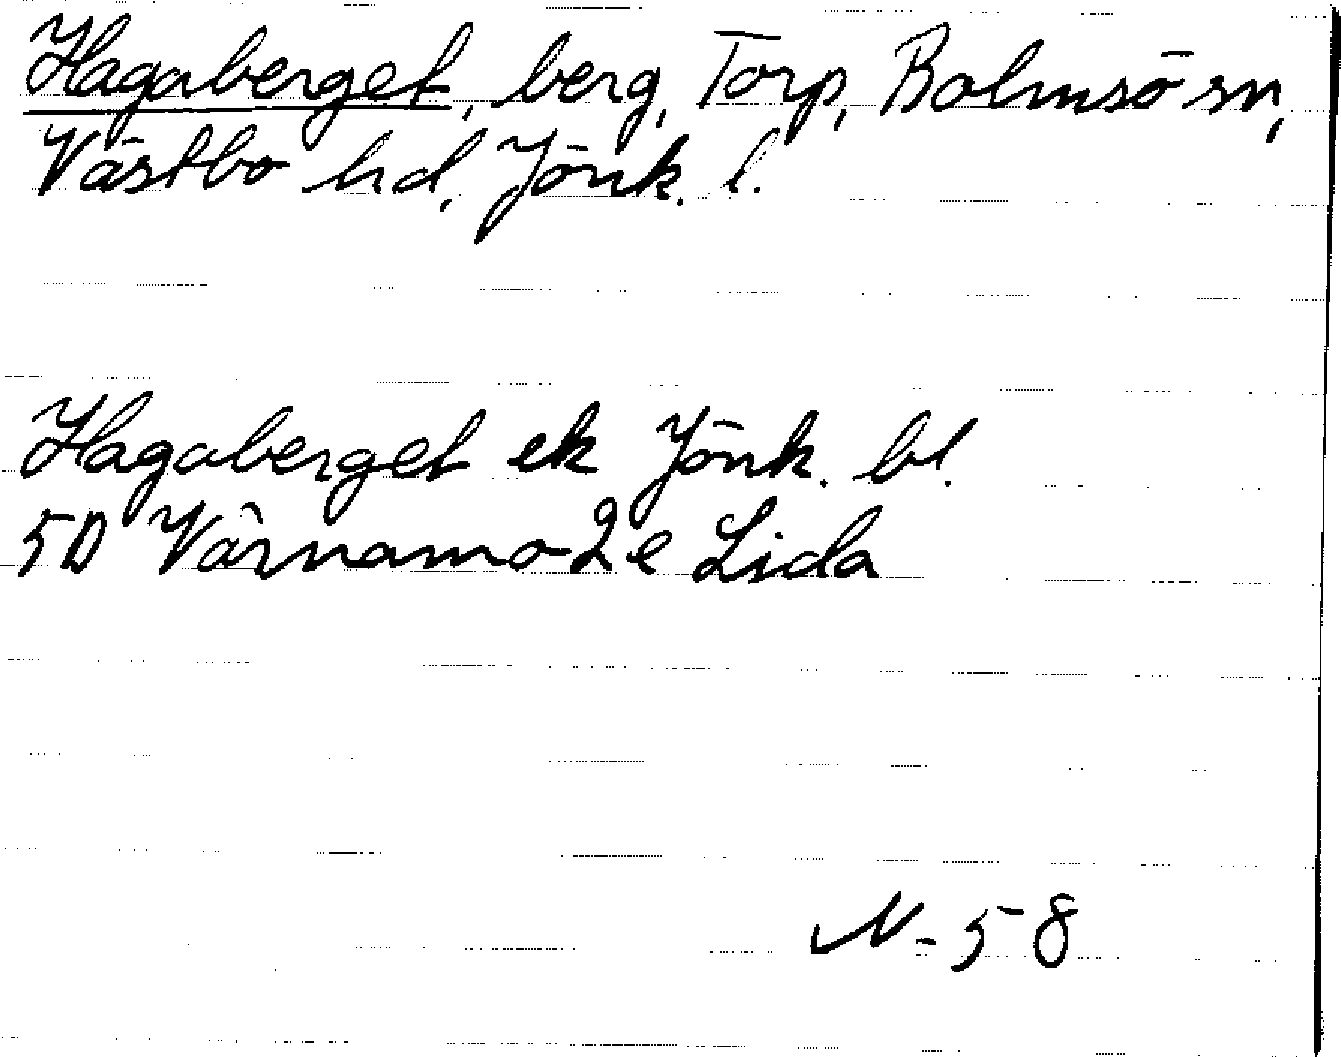 Hagaberget, berg, Torp, Bolmsö sn,
Västbo hd, Jönk. l.
Hagaberget ek Jönk. bl.
5D Värnamo 2e Lida
N-58